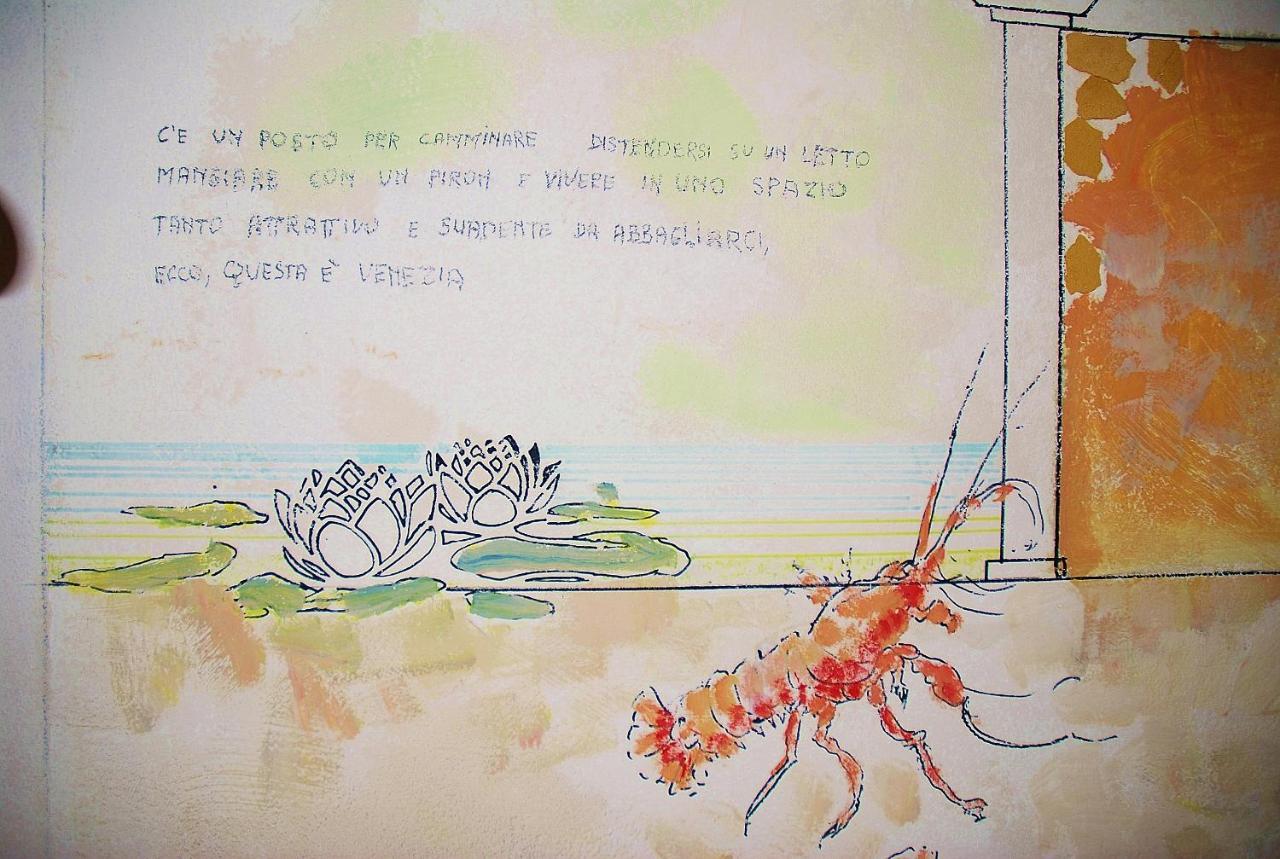 C'E UN POSTO PER CAMMINARE DISTENDERSI SU UN LETTO
MANGIARE CON UN PIRON E VIVERE IN UNO SPAZIO
TANTO ATTRATTIVO E SUADENTE DA ABBAGLIARCI,
ECCO, QUESTA È VENEZIA